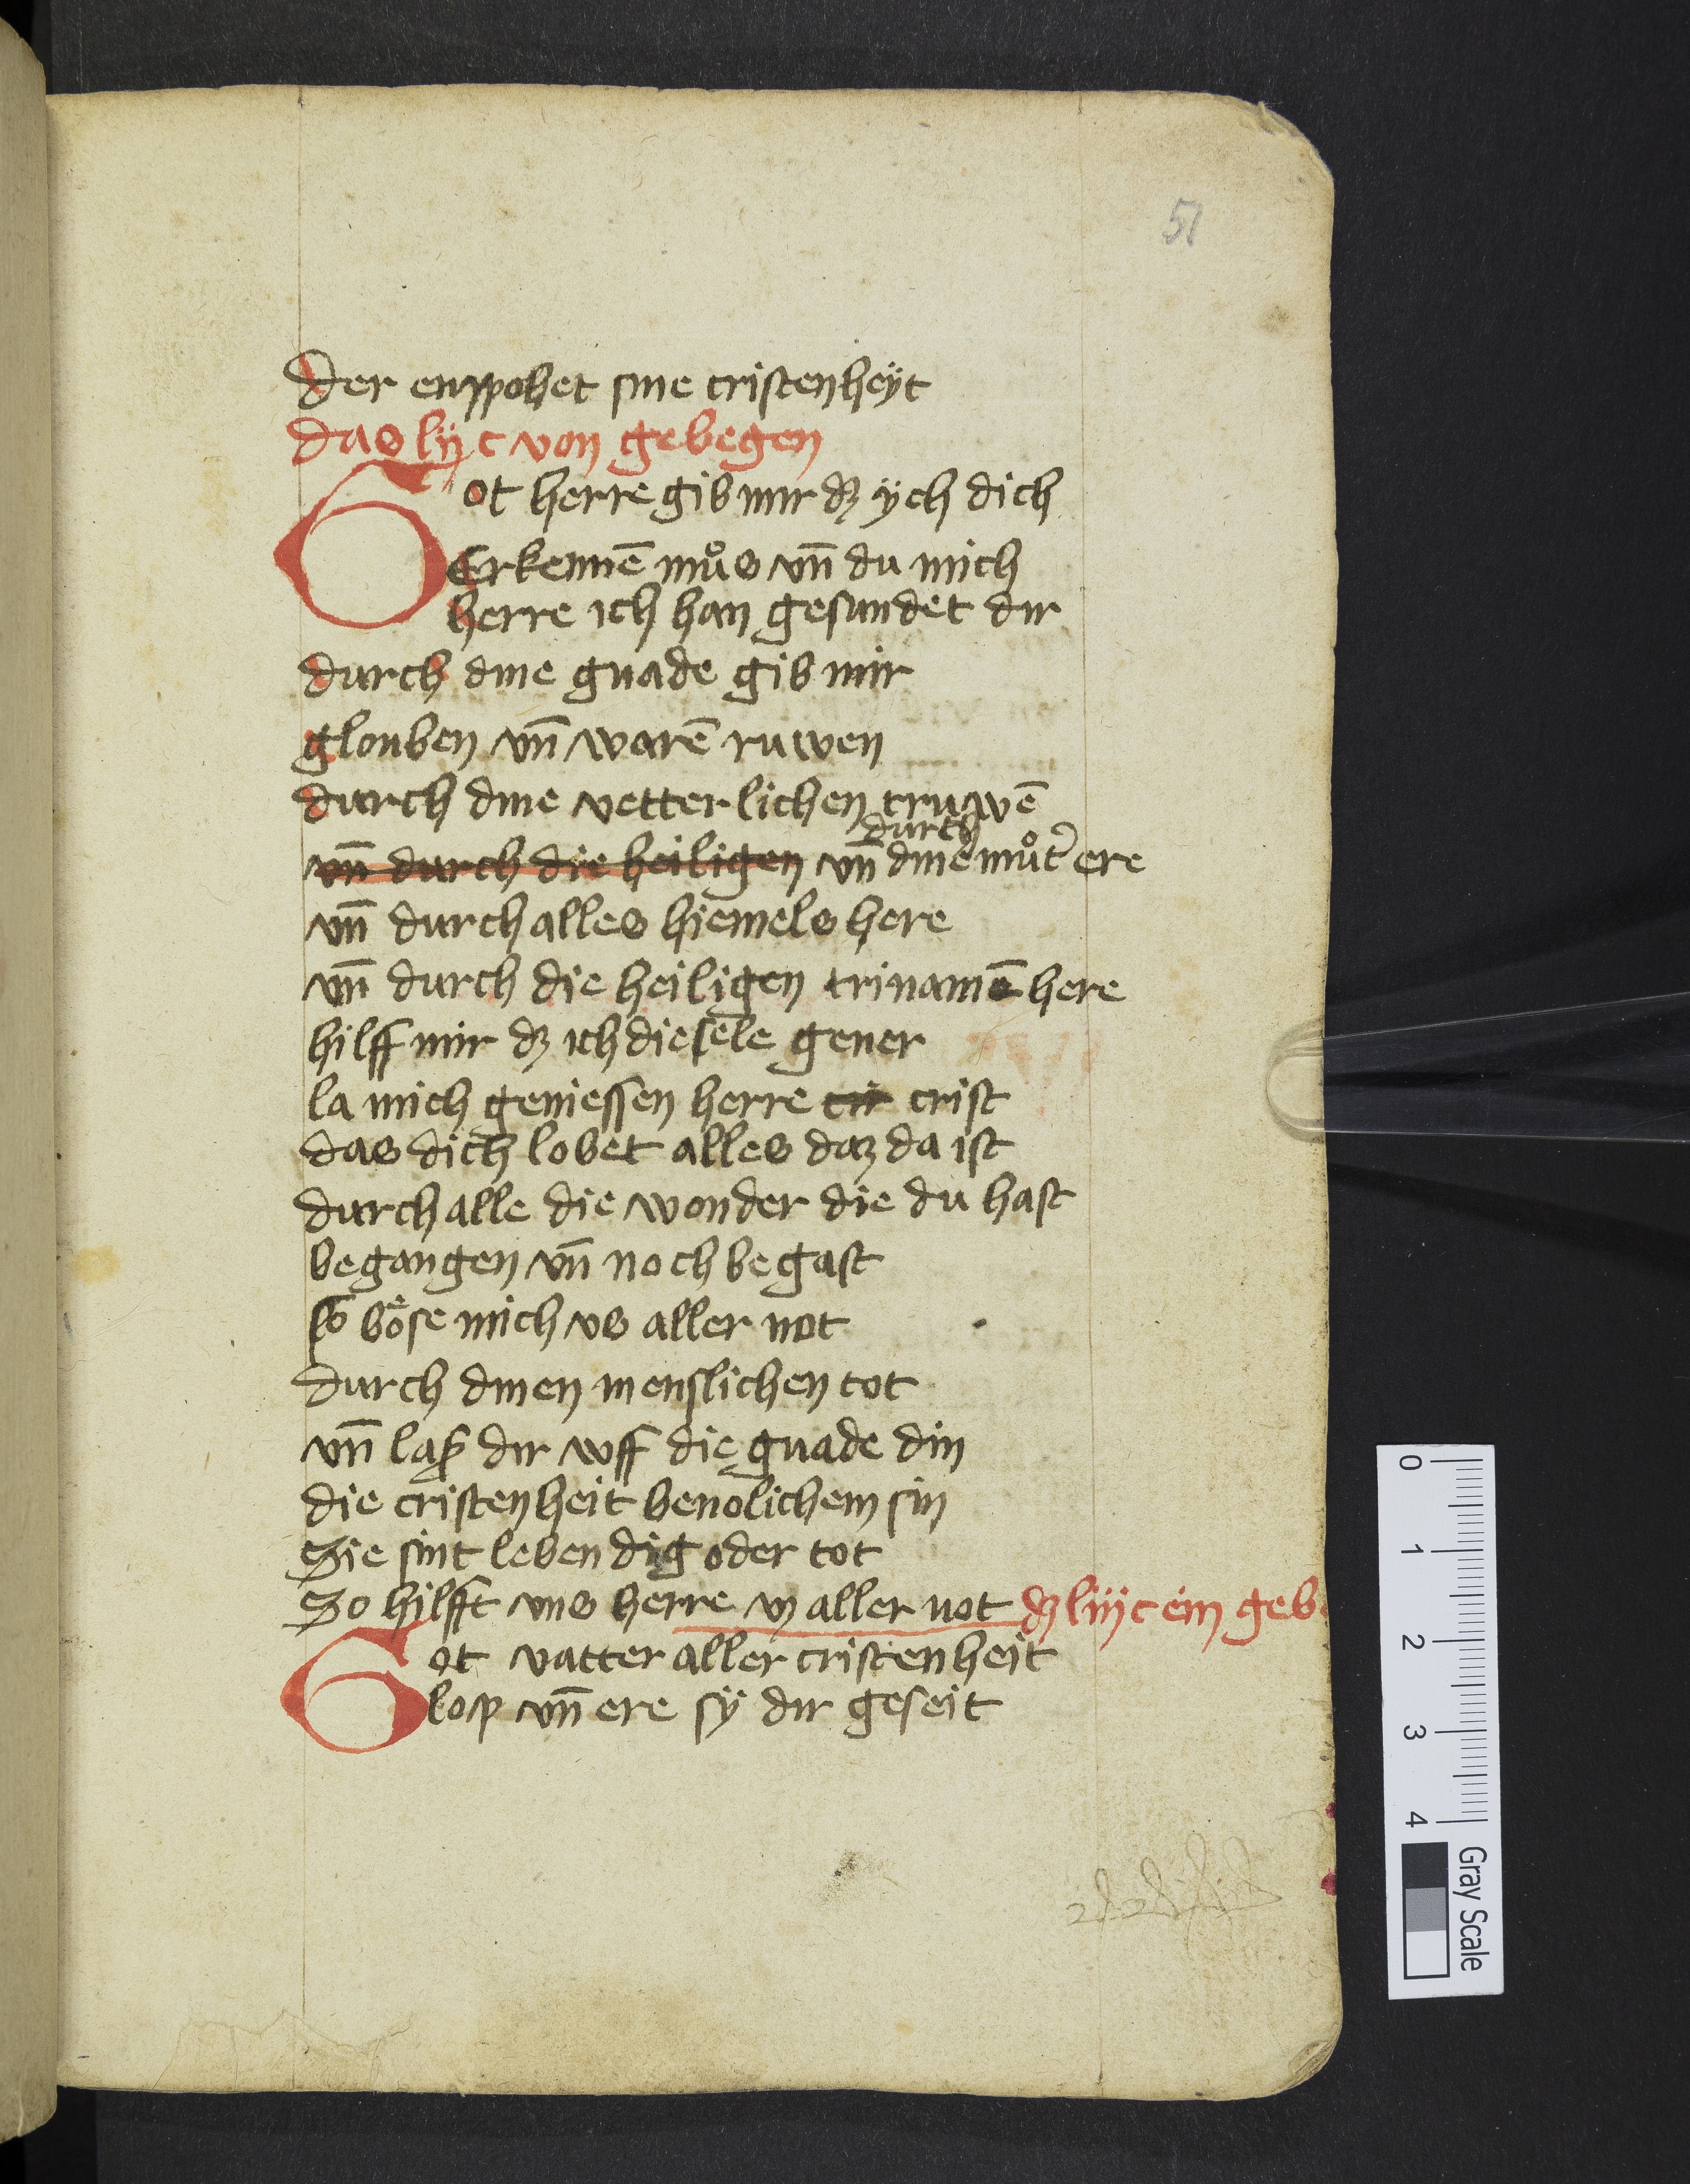 51
der enppohet sine cristenheÿt
das lijc von gebegen
Got herre gib mir dz ÿch dich
Erkennē mu̇s vn̄ du mich
herre ich han gesundet dir
durch dine gnade gib mir
glouben vn̄ warē ruwen
durch dine vetterlichen truwē
durch
vn̄ durch die heiligen vn̄ dine mu̇t̓ ere
vn̄ durch alles hiemels here
vn̄ durch die heiligen trinamē here
hilff mir dz ich die sele gener
la mich geniessen herre cir crist
das dich lobet alles daz da ist
durch alle die wonder die du hast
begangen vn̄ noch begast
so böse mich vs aller not
durch dinen menslichen tot
vn̄ laß dir wff die gnade din
die cristenheit benolichem sin
Sie sint lebendig oder tot
So hilfft vns herre vz aller not dz liijc ein geb
Got vatter aller cristenheit
lop vn̄ ere sÿ dir geseit
0 1 2 3 4 Gray Scale